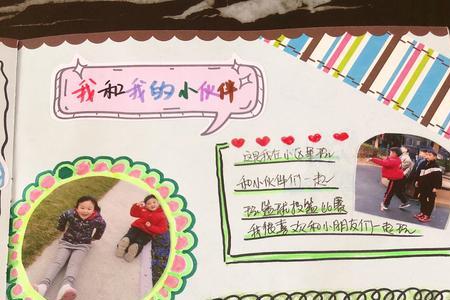 我和我的小伙伴
这是我在小区里玩
和小伙伴们一起
玩篮球投篮比赛
我很喜欢和小朋友们一起玩